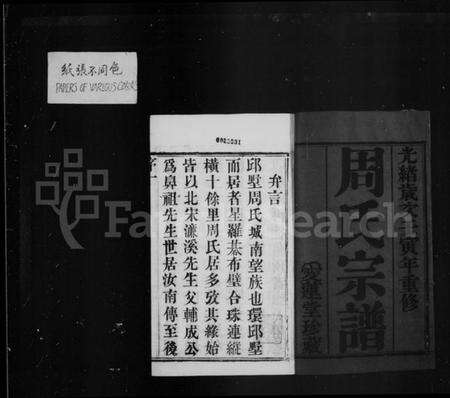 紙張不同色
PAPERS OF VARIOUS
光緒歲次寅年重修
周氏宗譜
愛蓮堂珍藏
弁言
邱墅周氏城南望族也環邱墅
而居者星羅碁布璧合珠連縱
橫十餘里周氏居多攷其緣始
皆以北宋濂溪先生父輔成公
爲鼻祖先生世居汝南傳至後
序一
FamilySearch